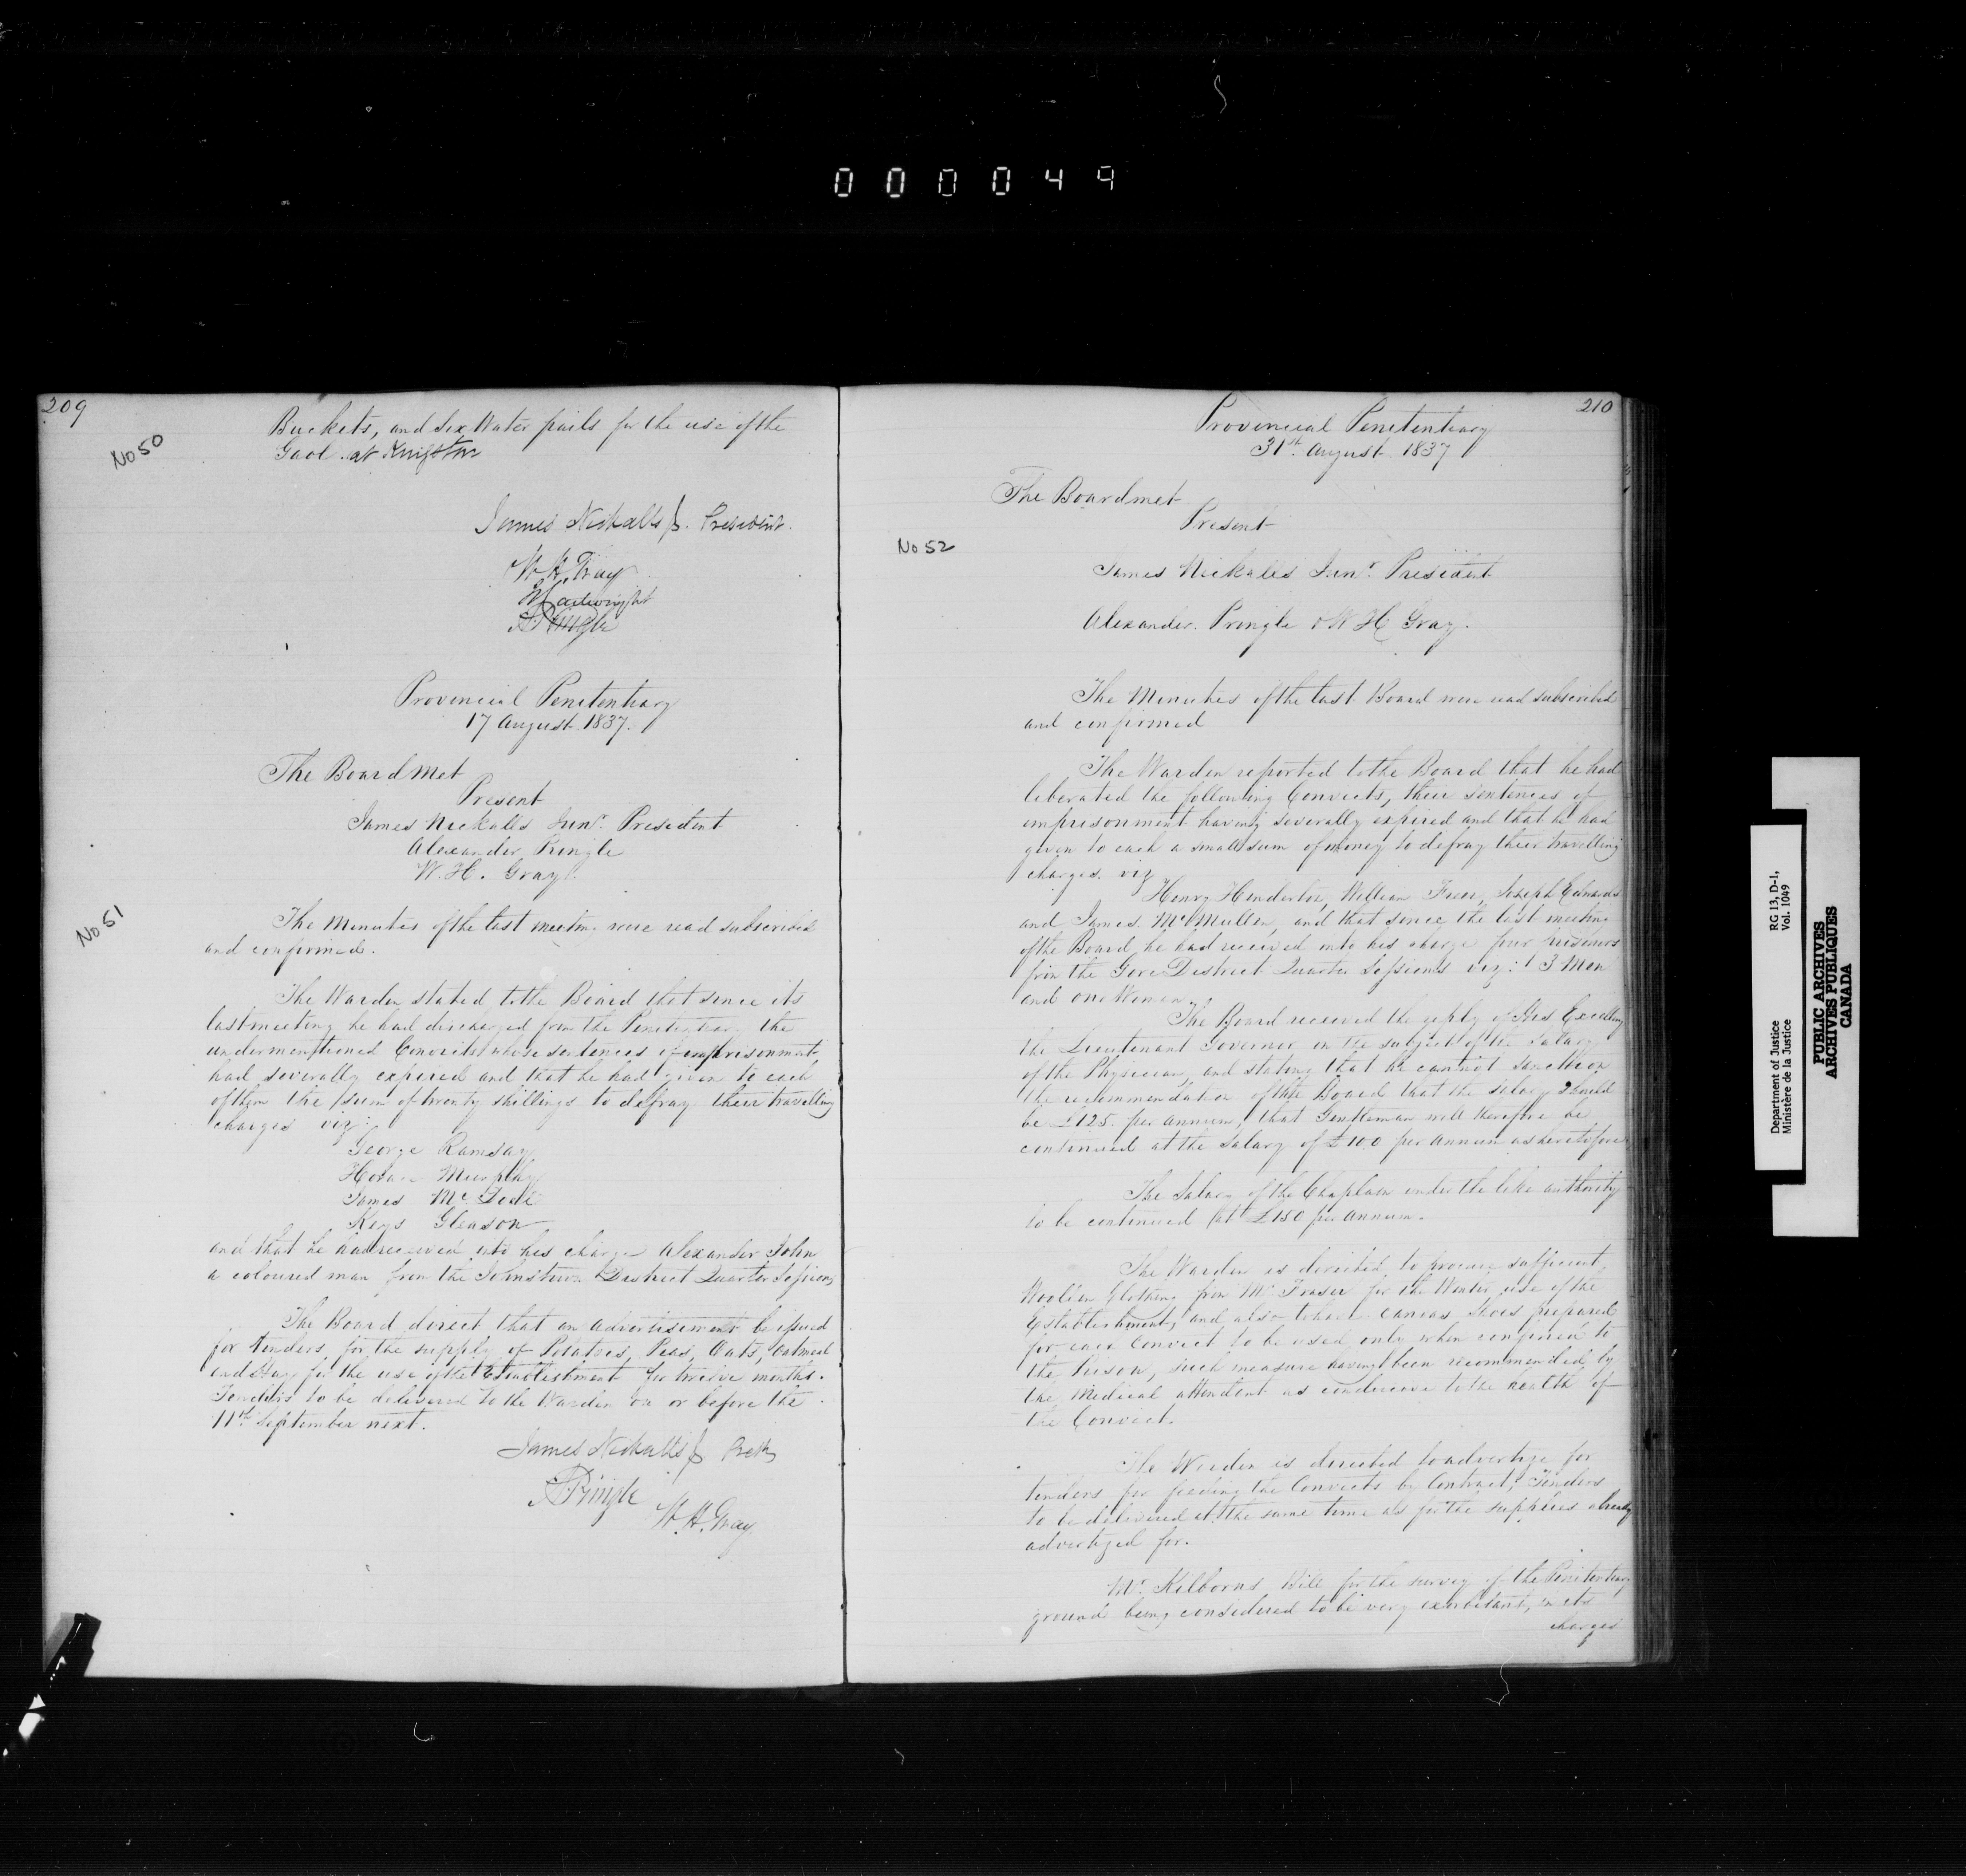 000049
209
No 50
Buckets, and Six Water pails for the use of the
Gaol at Kingston
James Nickalls Jr. President.
W. H. Gray
Cartwright
A Pringle
Provincial Penitentiary
17 August 1837.
The Board Met
Present
James Nickalls Junr. President
Alexander Pringle
W. H. Gray.
No 51
The Minutes of the last meeting were read subscribed
and confirmed.
The Warden stated to the Board that since its
last meeting he had discharged from the Penitentiary the
undermentioned Convicts whose sentences of imprisonment
had severally expired and that he had given to each
of them the sum of twenty shillings to defray their travelling
charges viz:
George Ramsay
Murphy
James Mc
Keys Gleason
and that he had received into his charge Alexander John
a coloured man from the Johnstown District Quarter Sessions
The Board direct that an advertisement be issued
for tenders for the supply of Potatoes, Peas, Oats, Oatmeal
and Hay for the use of the Establishment for twelve months.
Tenders to be delivered to the Warden on or before the
11th September next.
James Nickalls Jr
A Pringle
W. H. Gray
210
Provincial Penitentiary
31st. August 1837
The Board met
Present
No 52
James Nickalls Junr. President
Alexander Pringle & W H Gray.
The Minutes of the last Board were read subscribed
and confirmed
The Warden reported to the Board that he had
liberated the following Convicts, their sentences of
imprisonment having severally expired and that he had
given to each a small sum of money to defray their travelling
charges. viz
Henry William Joseph Edwards
and James McMullen, and that since the last meeting
of the Board, he had received into his charge four prisoners
from the Gore District Quarter Sessions viz: 3 Men
and one Woman.
The Board received the reply of His Excellency
the Lieutenant Governor on the subject of the Salary
of the Physician, and stating that he cannot sanction
the recommendation of the Board that the salary should
be £125. per annum, that Gentleman will therefore be
continued at the Salary of £100 per annum as heretofore
The Salary of the Chaplain under the like authority
to be continued at £150 per annum.
The Warden is directed to procure sufficient
Woollen Clothing from Mr Fraser for the Winter use of the
Establishment, and also to have canvas shoes prepared
for each Convict to be used only when confined to
the Prison, such measure having been recommended by
the Medical attendant as conducive to the health of
the Convict.
The Warden is directed to advertize for
tenders for feeding the Convicts by Contract, Tenders
to be delivered at the same time as for the supplies already
advertized for.
Mr. Kilborns Bill for the survey of the Penitentiary
ground being considered to be very exorbitant, in its
charges
Department of Justice
Ministère de la Justice
RG 13, D-1,
Vol. 1049
PUBLIC ARCHIVES
ARCHIVES PUBLIQUES
CANADA